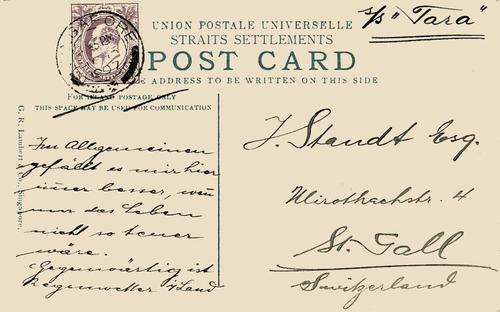 s/s "Tara"
UNION POSTALE UNIVERSELLE
STRAITS SETTLEMENTS
POST CARD
THE ADDRESS TO BE WRITTEN ON THIS SIDE
FOR INLAND POSTAGE ONLY
THIS SPACE MAY BE USED FOR COMMUNICATION
G. R. Lambert & Co., Singapore.
Im Allgemeinen
gefällt es mir hier
imer besser, wenn
nur das Leben
nicht so teuer
wäre.
Gegenwärtig ist
Regenwetter i/Land
J. Standt Esq.
St. Gall
Switzerland